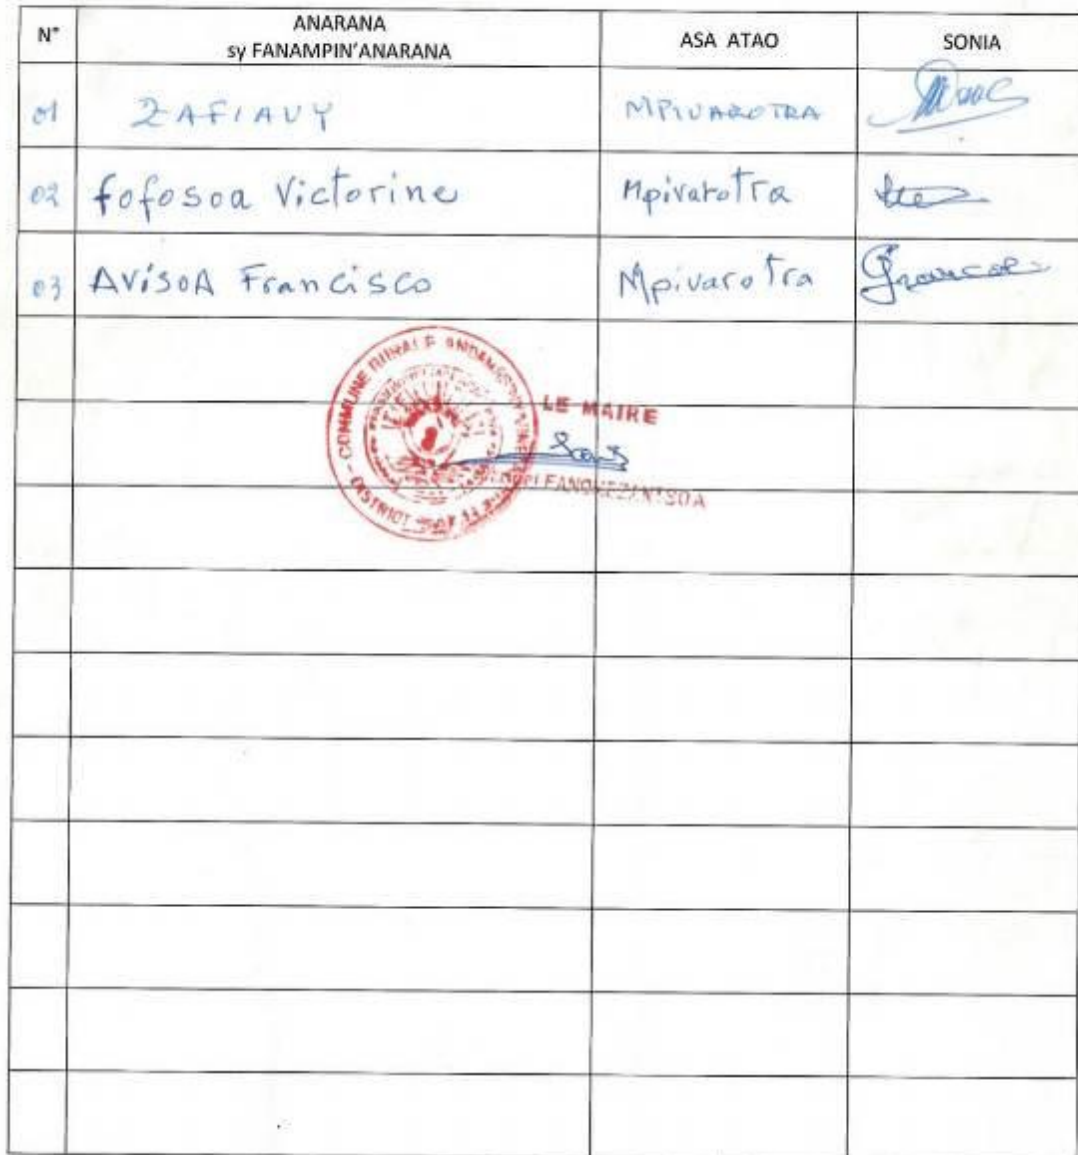 N° ANARANA sy FANAMPIN'ANARANA ASA ATAO SONIA
01 ZAFIAVY MPIVAROTRA
02 fofosoa Victorine Mpivarotra
03 AVisoA Francisco Mpivarotra
COMMUNE RURALE
DISTRICT
LE MAIRE